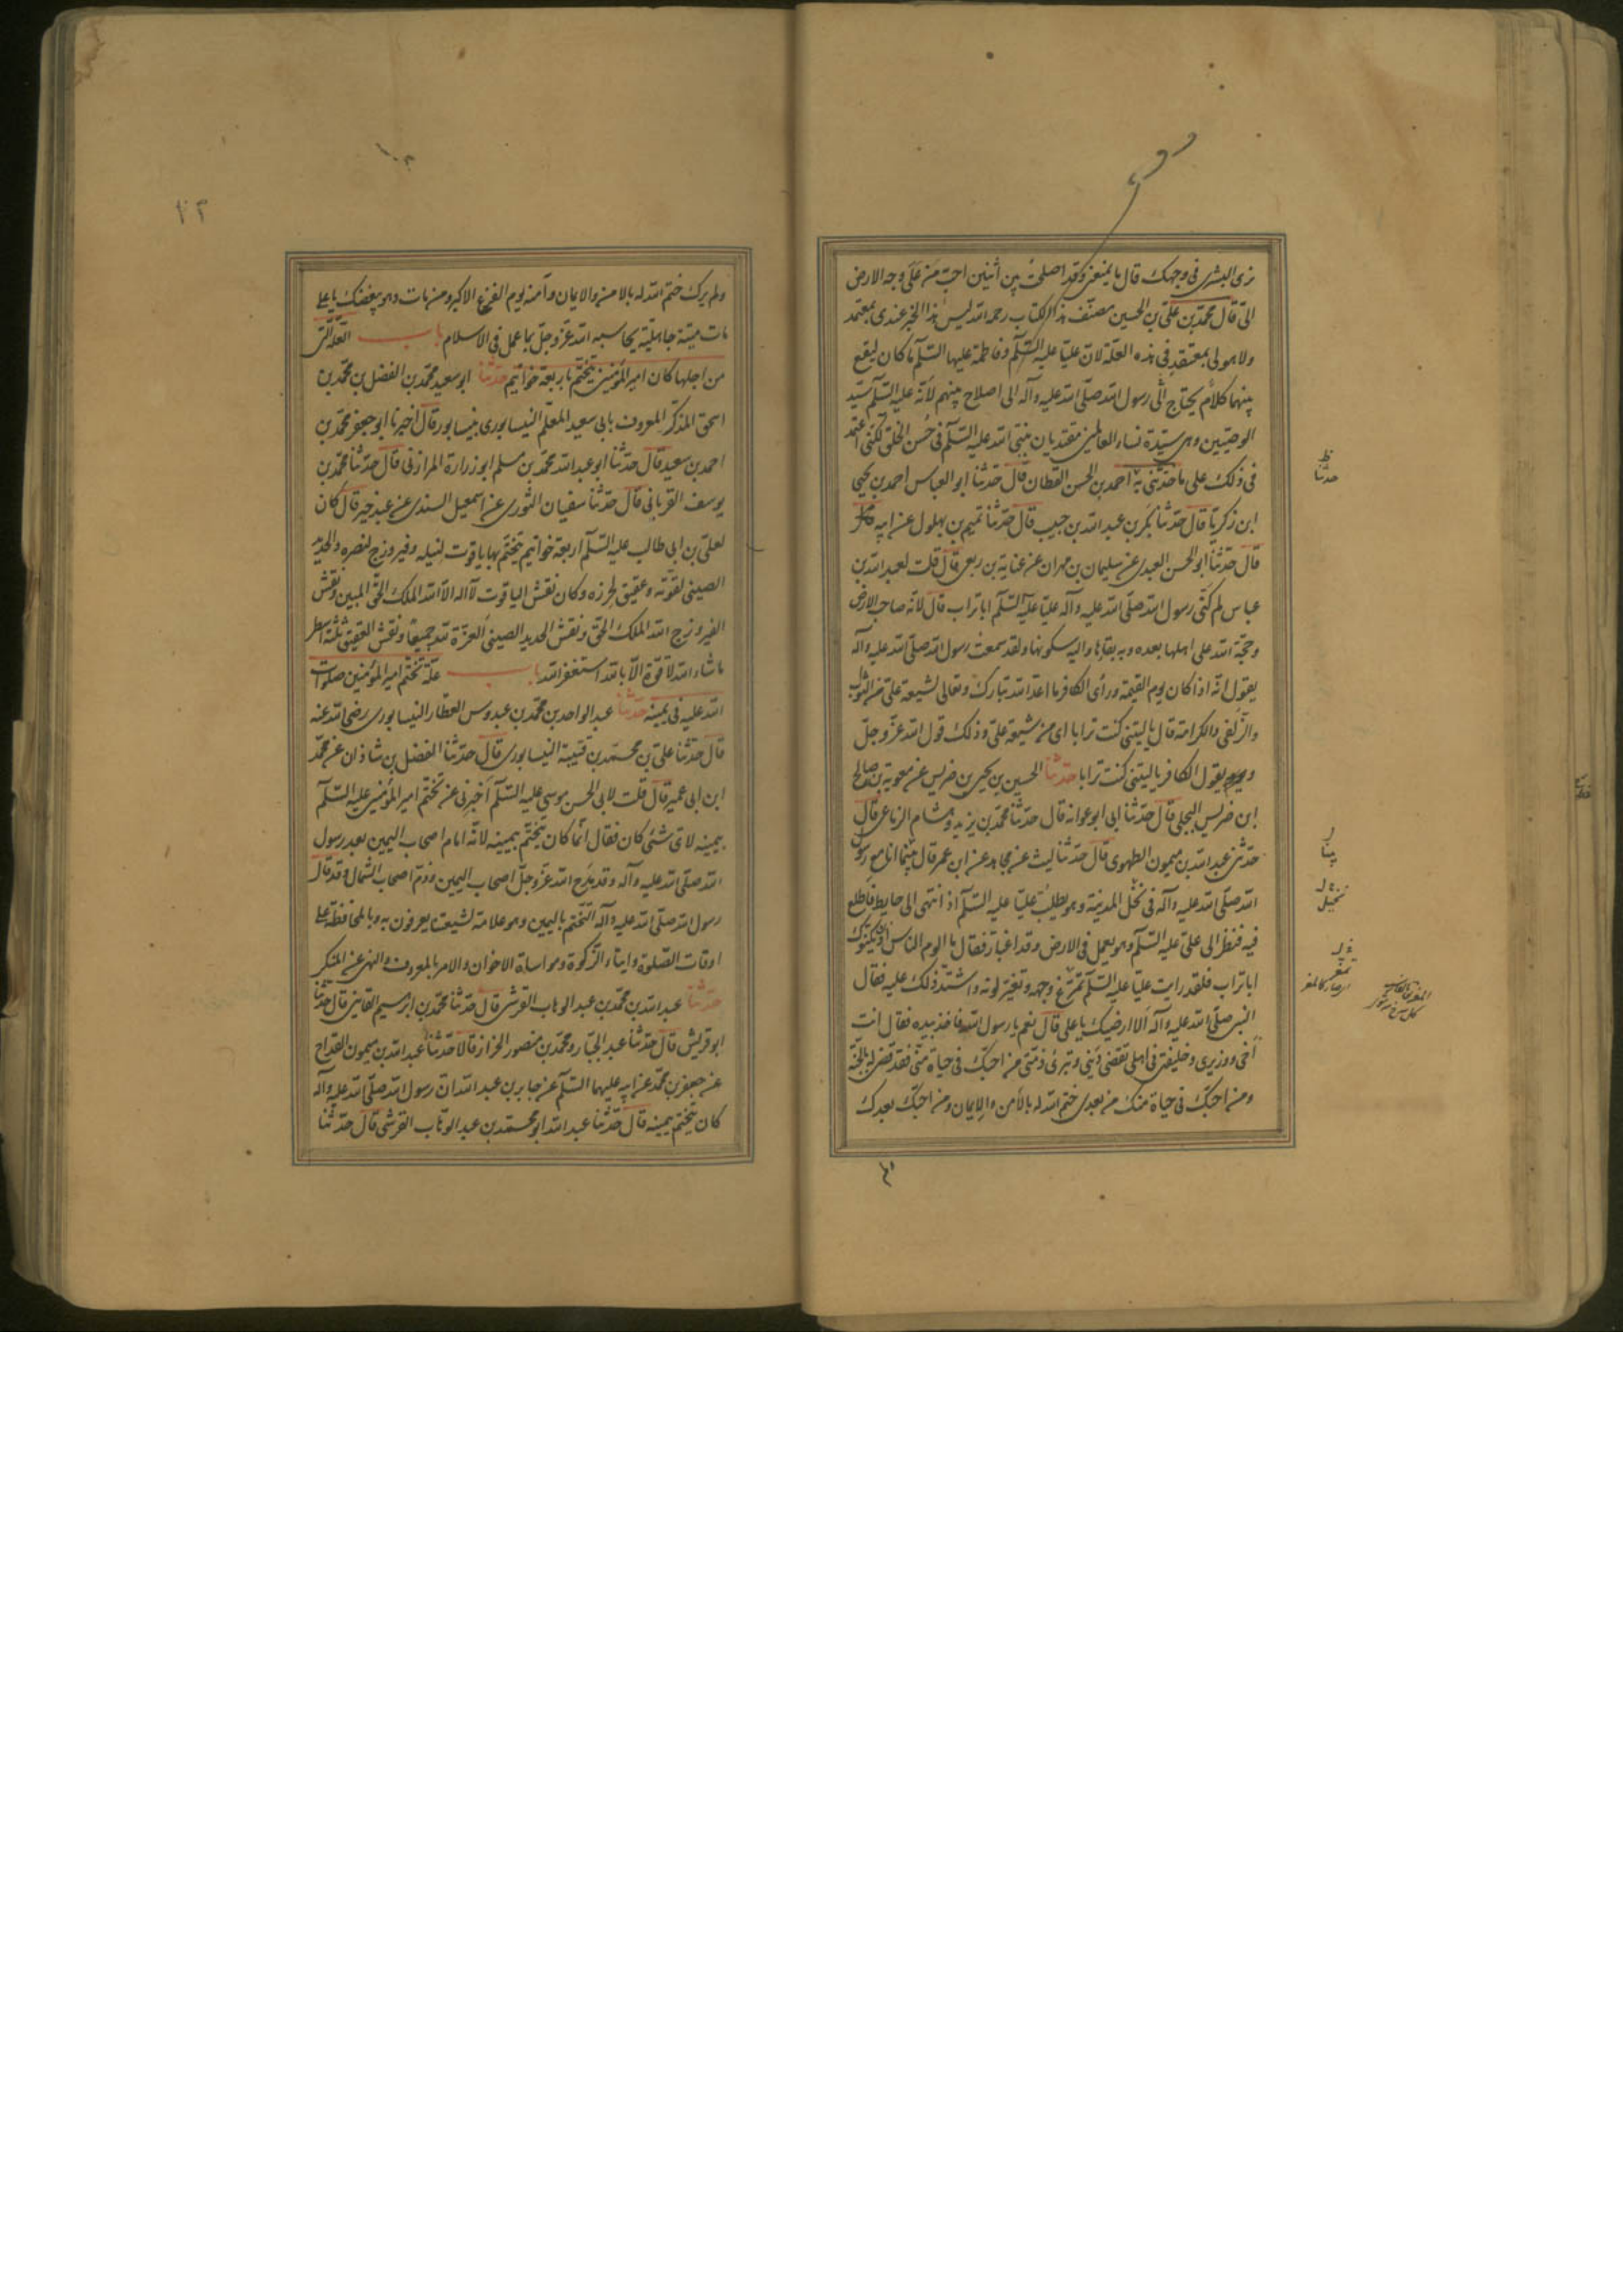 نرى البشرى في وجهك قال ما يمنعني وقد اصلحت بين اثنين احب من على وجه الارض
الى قال محمد بن علي بن الحسين مصنف هذا الكتاب رحمه الله ليس هذا الخبر عندى بمعتمد
ولا هو لى بمعتقد في هذه العلة لان عليا عليه السلم وفاطمة عليها السلم ما كان ليقع
بينهما كلام يحتاج الى رسول الله صلى الله عليه وآله الى اصلاح بينهم لأنه عليه السلم سيد
الوصيين وهي سيدة نساء العالمين مقتديان بنبي الله عليه السلم في حسن الخلق لكني اعتمد
في ذلك على ما حدثني به احمد بن الحسن القطان قال حدثنا ابو العباس احمد بن يحيى
ابن زكريا قال حدثنا بكر بن عبد الله بن حبيب قال حدثنا تميم بن بهلول عن ابيه
قال حدثنا ابو الحسن العبدى عن سليمان بن مهران عن عباية بن ربعى قال قلت لعبد الله بن
عباس لم كنى رسول الله صلى الله عليه وآله عليا عليه السلم ابا تراب قال لانه صاحب الارض
وحجة الله على اهلها بعده وبه بقاؤها واليه سكونها ولقد سمعت رسول الله صلى الله عليه وآله
يقول انه اذا كان يوم القيمة ورأى الكافر ما اعد الله تبارك وتعالى لشيعة على من الثواب
والزلفى والكرامة قال يا ليتنى كنت ترابا اى من شيعة على وذلك قول الله عز وجل
ويقول الكافر يا ليتنى كنت ترابا حدثنا الحسين بن يحيى بن ضريس عن معوية بن صالح
ابن ضريس البجلى قال حدثنا ابى ابو عوانة قال حدثنا محمد بن يزيد وهشام الزناعى قال
حدثنى عبد الله بن ميمون الطهوى قال حدثنا ليث عن مجاهد عن ابن عمر قال بينما انا مع رسول
الله صلى الله عليه وآله في نخل المدينة وهو يطلب عليا عليه السلم اذ انتهى الى حايط فاطلع
فيه فنظر الى على عليه السلم وهو يعمل في الارض وقد اغبار فقال ما الوم الناس ان يكنوك
ابا تراب فلقد رايت عليا عليه السلم تمغر وجهه وتغير لونه واشتد ذلك عليه فقال
النبى صلى الله عليه وآله الا ارضيك يا على قال نعم يا رسول الله فاخذ بيده فقال انت
اخى ووزيرى وخليفتى في اهلى تقضى دينى وتبرئ ذمتى من احبك في حياة منى فقد قضى له بالجنة
ومن احبك في حياة منك من بعدى ختم الله له بالأمن والايمان ومن احبك بعدك
حدثنا
نخيل
تمغر
ولم يرك ختم الله له بالامن والايمان وآمنه يوم الفزع الاكبر ومن مات وهو يبغضك يا على
مات ميتة جاهلية يحاسبه الله عز وجل بما عمل في الاسلام باب العلة التى
من اجلها كان امير المؤمنين يتختم باربعة خواتيم حدثنا ابو سعيد محمد بن الفضل بن محمد بن
اسحق المذكر المعروف بابى سعيد المعلم النيسابورى بنيسابور قال اخبرنا ابو جعفر محمد بن
احمد بن سعيد قال حدثنا ابو عبد الله محمد بن مسلم ابو زرارة المرازنى قال حدثنا محمد بن
يوسف الفريانى قال حدثنا سفيان الثورى عن اسمعيل السندى عن عبد خير قال كان
لعلى بن ابى طالب عليه السلم اربعة خواتيم يتختم بها ياقوت لنيله وفيروزج لنصره والحديد
الصينى لقوته وعقيق لحرزه وكان نقش الياقوت لا اله الا الله الملك الحق المبين ونقش
الفيروزج الله الملك الحق ونقش الحديد الصينى العزة لله جميعا ونقش العقيق ثلثة اسطر
ما شاء الله لا قوة الا بالله استغفر الله باب علة تختم امير المؤمنين صلوات
الله عليه في يمينه حدثنا عبد الواحد بن محمد بن عبدوس العطار النيسابورى رضى الله عنه
قال حدثنا على بن محمد بن قتيبة النيسابورى قال حدثنا الفضل بن شاذان عن محمد
ابن ابى عمير قال قلت لابى الحسن موسى عليه السلم اخبرنى عن تختم امير المؤمنين عليه السلم
بيمينه لاى شئ كان فقال انما كان يتختم بيمينه لانه امام اصحاب اليمين بعد رسول
الله صلى الله عليه وآله وقد مدح الله عز وجل اصحاب اليمين وذم اصحاب الشمال وقد قال
رسول الله صلى الله عليه وآله التختم باليمين وهو علامة لشيعتنا يعرفون به وبالمحافظة على
اوقات الصلوة وايتاء الزكوة ومواساة الاخوان والامر بالمعروف والنهى عن المنكر
حدثنا عبد الله بن محمد بن عبد الوهاب القرشى قال حدثنا محمد بن ابرهيم القاينى قال حدثنا
ابو قريش قال حدثنا عبد الجبار ومحمد بن منصور الخزاز قالا حدثنا عبد الله بن ميمون القداح
عن جعفر بن محمد عن ابيه عليهما السلم عن جابر بن عبد الله ان رسول الله صلى الله عليه وآله
كان يتختم بيمينه قال حدثنا عبد الله ابو محمد بن عبد الوهاب القرشى قال حدثنا